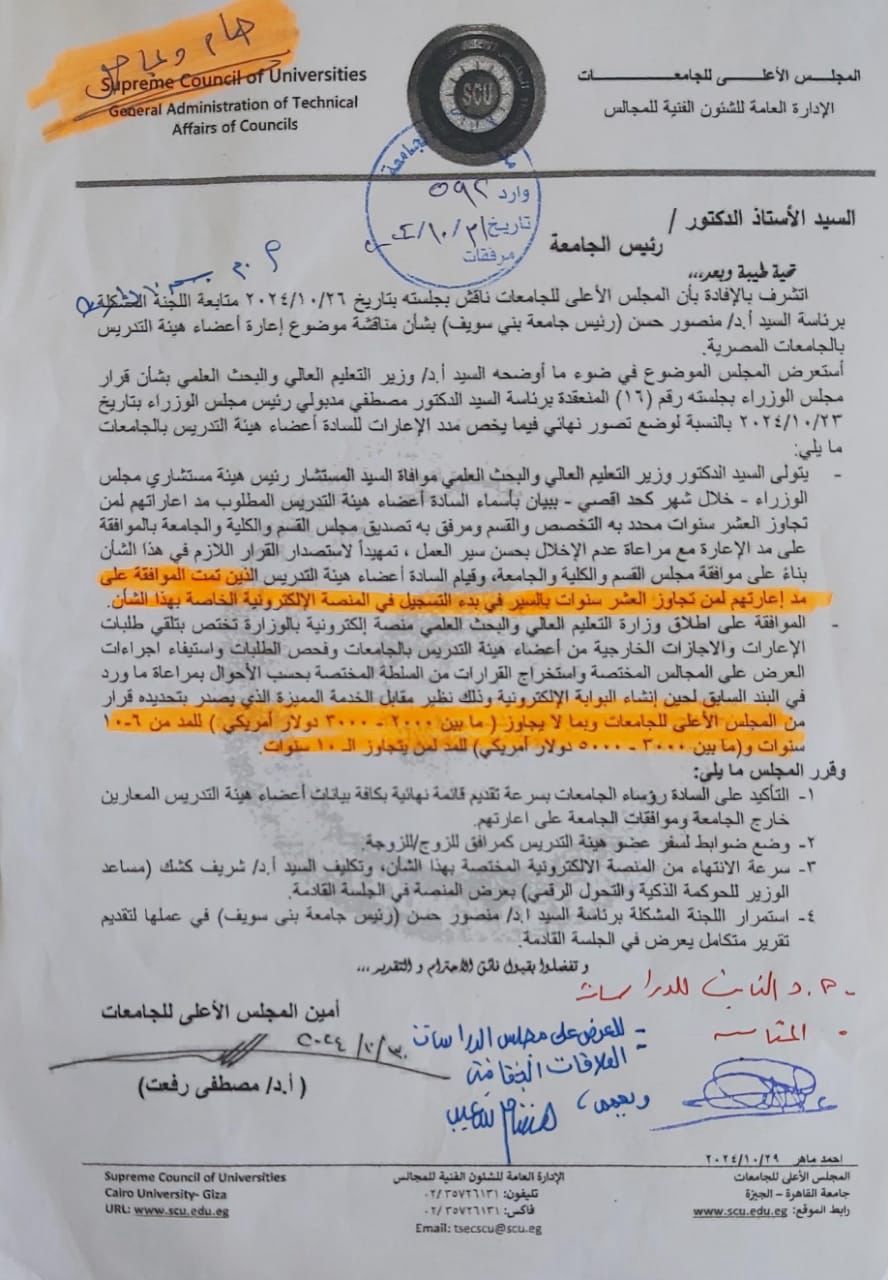 هام وعاجل
Supreme Council of Universities
General Administration of Technical
Affairs of Councils
SCU
المجلس الأعلى للجامعات
الإدارة العامة للشئون الفنية للمجالس
وارد ٥٩٢
تاريخ ٣١/١٠/
مرفقات
السيد الأستاذ الدكتور /
رئيس الجامعة
تحية طيبة وبعد،،،
اتشرف بالإفادة بأن المجلس الأعلى للجامعات ناقش بجلسته بتاريخ ٢٠٢٤/١٠/٢٦ متابعة اللجنة المشكلة
برئاسة السيد أ.د/ منصور حسن (رئيس جامعة بني سويف) بشأن مناقشة موضوع إعارة أعضاء هيئة التدريس
بالجامعات المصرية.
أستعرض المجلس الموضوع في ضوء ما أوضحه السيد أ.د/ وزير التعليم العالي والبحث العلمي بشأن قرار
مجلس الوزراء بجلسته رقم (١٦) المنعقدة برئاسة السيد الدكتور مصطفي مدبولي رئيس مجلس الوزراء بتاريخ
٢٠٢٤/١٠/٢٣ بالنسبة لوضع تصور نهائي فيما يخص مدد الإعارات للسادة أعضاء هيئة التدريس بالجامعات
ما يلي:
- يتولى السيد الدكتور وزير التعليم العالي والبحث العلمي موافاة السيد المستشار رئيس هيئة مستشاري مجلس
الوزراء - خلال شهر كحد اقصي - ببيان بأسماء السادة أعضاء هيئة التدريس المطلوب مد اعاراتهم لمن
تجاوز العشر سنوات محدد به التخصص والقسم ومرفق به تصديق مجلس القسم والكلية والجامعة بالموافقة
على مد الإعارة مع مراعاة عدم الإخلال بحسن سير العمل ، تمهيداً لاستصدار القرار اللازم في هذا الشأن
بناءً على موافقة مجلس القسم والكلية والجامعة، وقيام السادة أعضاء هيئة التدريس الذين تمت الموافقة على
مد إعارتهم لمن تجاوز العشر سنوات بالسير في بدء التسجيل في المنصة الإلكترونية الخاصة بهذا الشأن.
- الموافقة على اطلاق وزارة التعليم العالي والبحث العلمي منصة إلكترونية بالوزارة تختص بتلقي طلبات
الإعارات والاجازات الخارجية من أعضاء هيئة التدريس بالجامعات وفحص الطلبات واستيفاء اجراءات
العرض على المجالس المختصة واستخراج القرارات من السلطة المختصة بحسب الأحوال بمراعاة ما ورد
في البند السابق لحين إنشاء البوابة الإلكترونية وذلك نظير مقابل الخدمة المميزة الذي يصدر بتحديده قرار
من المجلس الأعلى للجامعات وبما لا يجاوز ( ما بين ٢٠٠٠ - ٣٠٠٠ دولار أمريكي ) للمد من ٦-١٠
سنوات و(ما بين ٣٠٠٠ - ٥٠٠٠ دولار أمريكي) للمد لمن يتجاوز الـ ١٠ سنوات.
وقرر المجلس ما يلى:
١- التأكيد على السادة رؤساء الجامعات بسرعة تقديم قائمة نهائية بكافة بيانات أعضاء هيئة التدريس المعارين
خارج الجامعة وموافقات الجامعة على اعارتهم.
٢- وضع ضوابط لسفر عضو هيئة التدريس كمرافق للزوج/للزوجة.
٣- سرعة الانتهاء من المنصة الالكترونية المختصة بهذا الشأن، وتكليف السيد أ.د/ شريف كشك (مساعد
الوزير للحوكمة الذكية والتحول الرقمي) بعرض المنصة في الجلسة القادمة.
٤- استمرار اللجنة المشكلة برئاسة السيد ا.د/ منصور حسن (رئيس جامعة بنى سويف) في عملها لتقديم
تقرير متكامل يعرض في الجلسة القادمة.
و تفضلوا بقبول فائق الاحترام و التقدير ،،،
أ.د النائب للدراسات
أمين المجلس الأعلى للجامعات
- للعرض على مجلس الدراسات
٢٠٢٤/١٠/٣٠
العلاقات الثقافية
( أ.د/ مصطفى رفعت)
احمد ماهر ٢٠٢٤/١٠/٢٩
Supreme Council of Universities
Cairo University- Giza
URL: www.scu.edu.eg
الإدارة العامة للشئون الفنية للمجالس
تليفون: ٠٢/٣٥٧٢٦١٣١
فاكس: ٠٢/٣٥٧٢٦١٣١
Email: tsecscu@scu.eg
المجلس الأعلى للجامعات
جامعة القاهرة - الجيزة
رابط الموقع: www.scu.edu.eg